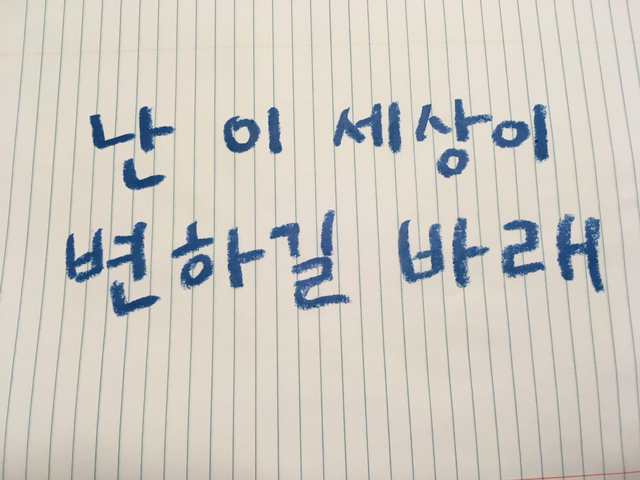 난 이 세상이
변하길 바래